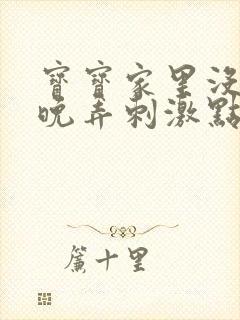 寶寶家里沒
晚弄刺激點
簾十里